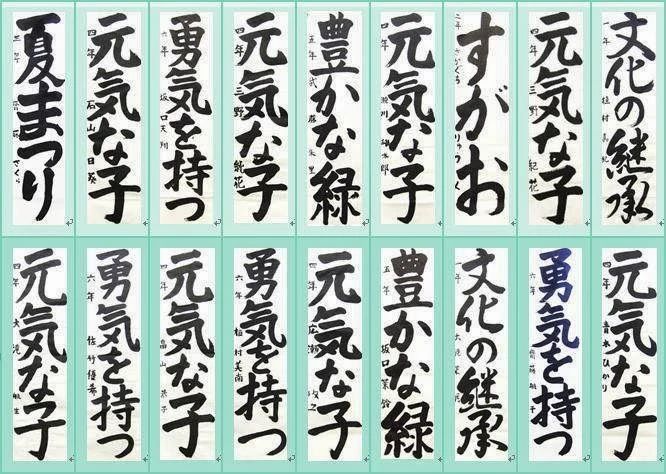 夏まつり
三年
さくら
元気な子
四年
石山日葵
勇気を持つ
六年
坂口天翔
元気な子
四年
三野紀花
豊かな緑
五年
元気な子
四年
瀧川
すがお
二年
さかぐち
元気な子
四年
三野紀花
文化の継承
一年
植村
元気な子
四年
大滝
勇気を持つ
六年
佐竹優希
元気な子
四年
畠山
勇気を持つ
六年
植村美南
元気な子
四年
広瀬
豊かな緑
五年
坂口
文化の継承
一年
勇気を持つ
六年
元気な子
四年
青木ひかり